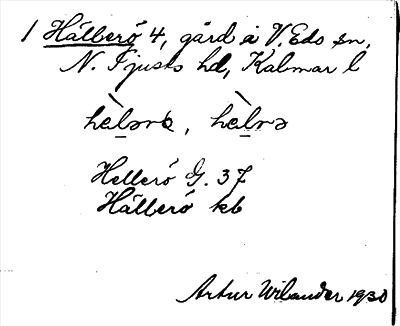 1 Hällerö 4, gård i V. Eds sn,
N. Tjusts hd, Kalmar l
hèlərə, hèlrə
Hellerö G. 37
Hällerö kb
Artur Wilander 1930